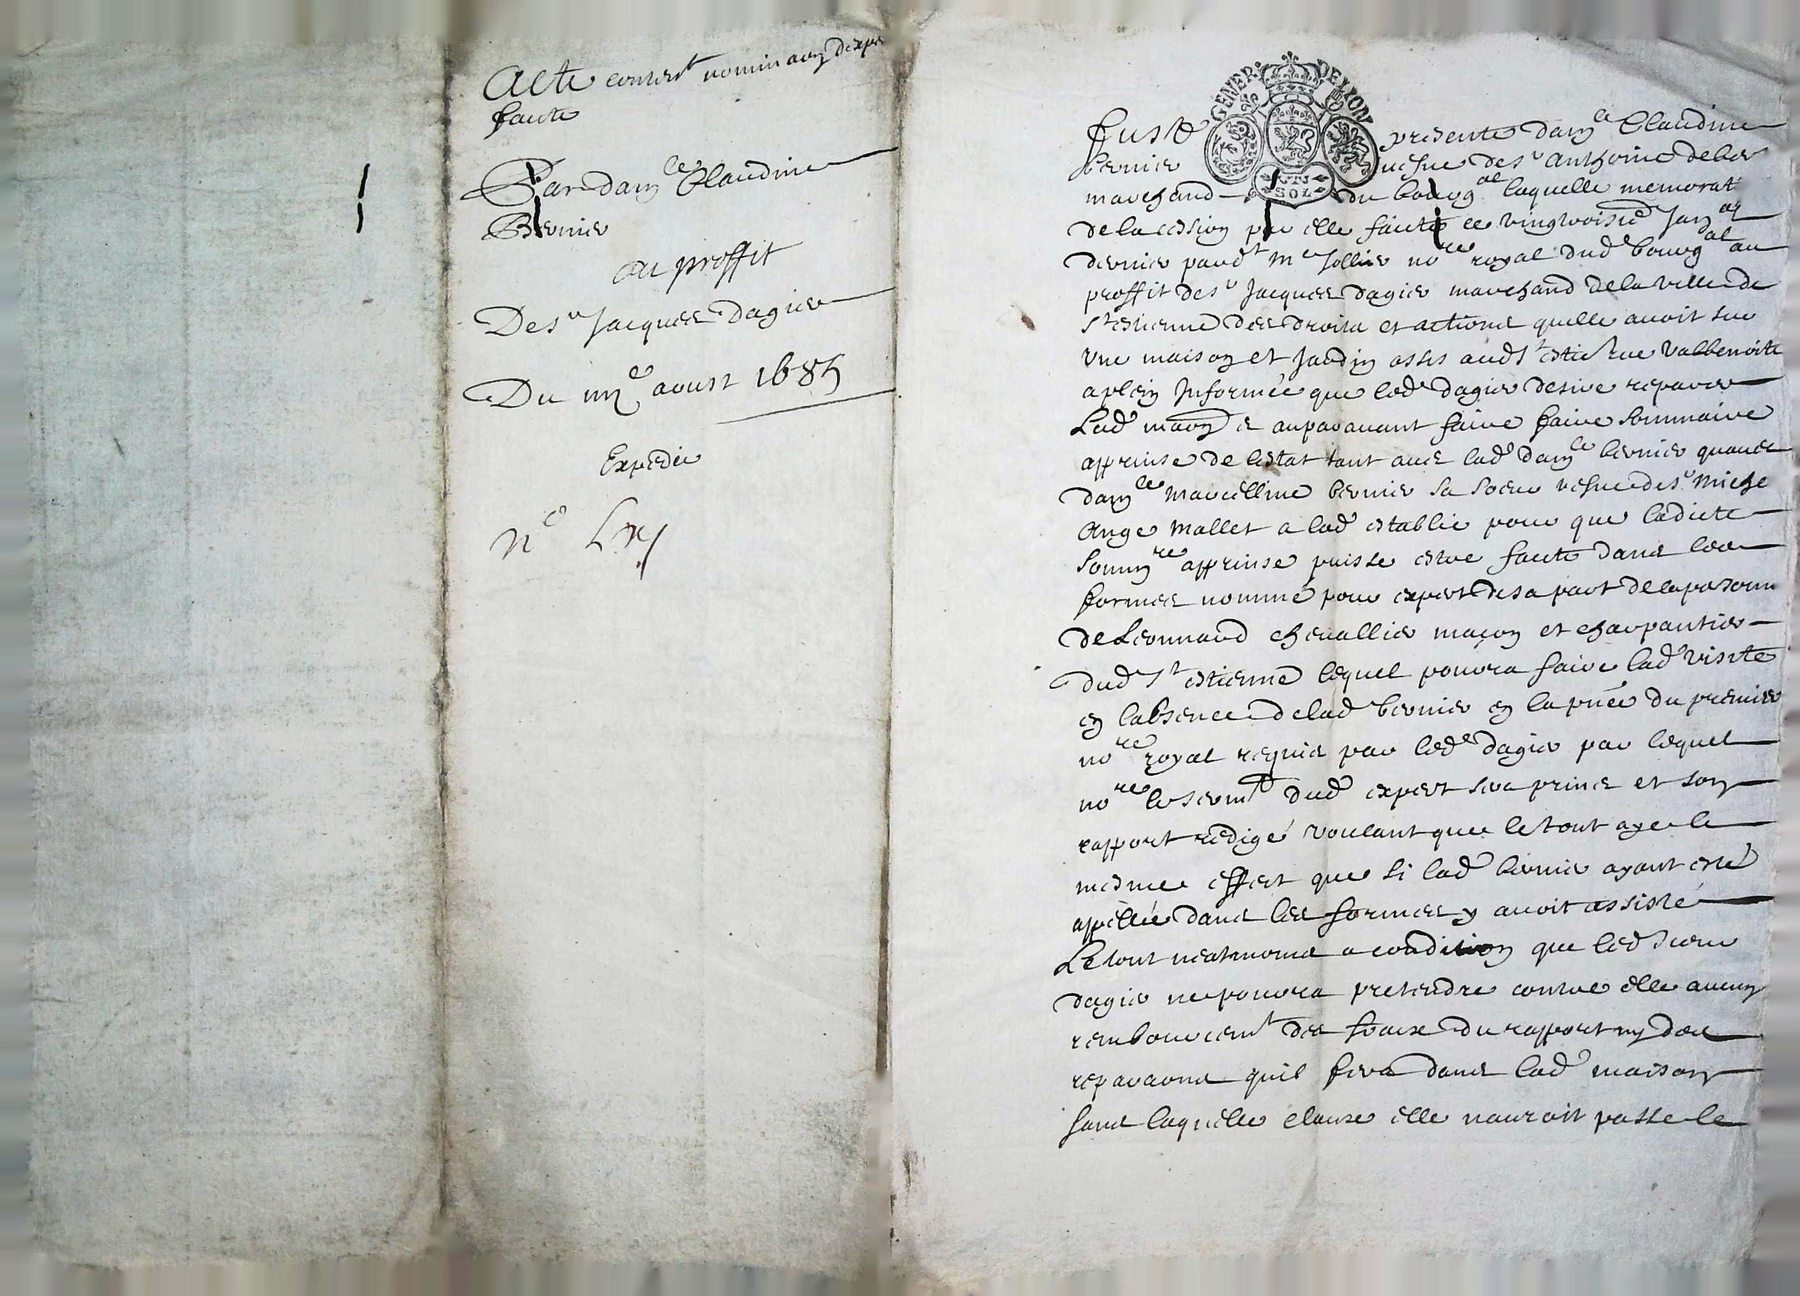 Acte content nominaon dexper
faicte
Par dam.le Claudine
Bernier
au proffit
De s.r Jacques Dagier
Du iiij.e aoust 1685
Expedié
GENER. DE LYON
UN
SOL
Fust presente dam.le Claudine
Bernier vefue de s.r Anthoine
marchand du bourg laquelle memorat
de la cession par elle faicte le vingtroisie.
dernier pard.t m.e Jollier no.re royal dud. bourg au
proffit de s.r Jacques Dagier marchand de la ville de
S.t Estienne des droits et actions quelle auoit sur
vne maison et Jardin assis aud. S.t Estie. rue Valbenoite
a plein Informée que led. Dagier desire reparer
Lad. maon. et auparauant faire faire sommaire
apprinse de lestat tant auec lad. dam.le bernier quauec
dam.le Marcelline bernier sa soeur vefue de s.r Michel
Ange Mallet a lad. establie pour que ladicte
somm.re apprinse puisse estre faicte dans les
formes nommé pour expert de sa part de la personne
de Leonnard Cheuallier maçon et charpantier
dud. S.t Estienne lequel pourra faire lad. visite
en labsence de lad. bernier en la pnce du premier
no.re royal requis par led. Dagier par lequel
no.re le serm.t dud. expert sera prins et son
rapport redigé voulant que le tout aye le
mesme effect que si lad. bernier ayant esté
appellée dans les formes y auoit assisté
Le tout neatmoins a condition que led. sieur
Dagier ne pourra pretendre contre elle aucun
remboursem.t des fraix du rapport ny des
reparaons quil fera dans lad. maison
sans laquelle clause elle nauroit passe le